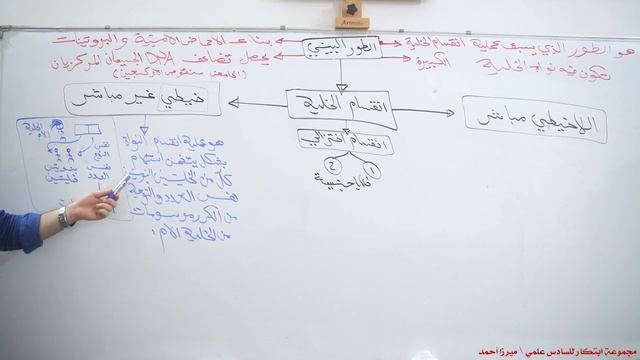 الطور البيني
هو الطور الذي يسبق عملية انقسام الخلية
تكون فيه نواة الخلية الكبيرة
بناء الاحماض الامينية والبروتينات
يحصل تضاعف DNA الجسيمان المركزيان
انقسام الخلية
اللاخيطي مباشر
خيطي غير مباشر
انقسام اختزالي
1
2
خلايا جنسية
هو عملية انقسام النواة
بشكل يضمن استلام
كل من الخليتين
نفس العدد والنوعية
من الكروموسومات
من الخلية الام
الخلية
الام
نفس
النوع
نفس
العدد
مجموعة ابتكار للسادس علمي \ ميرزا احمد